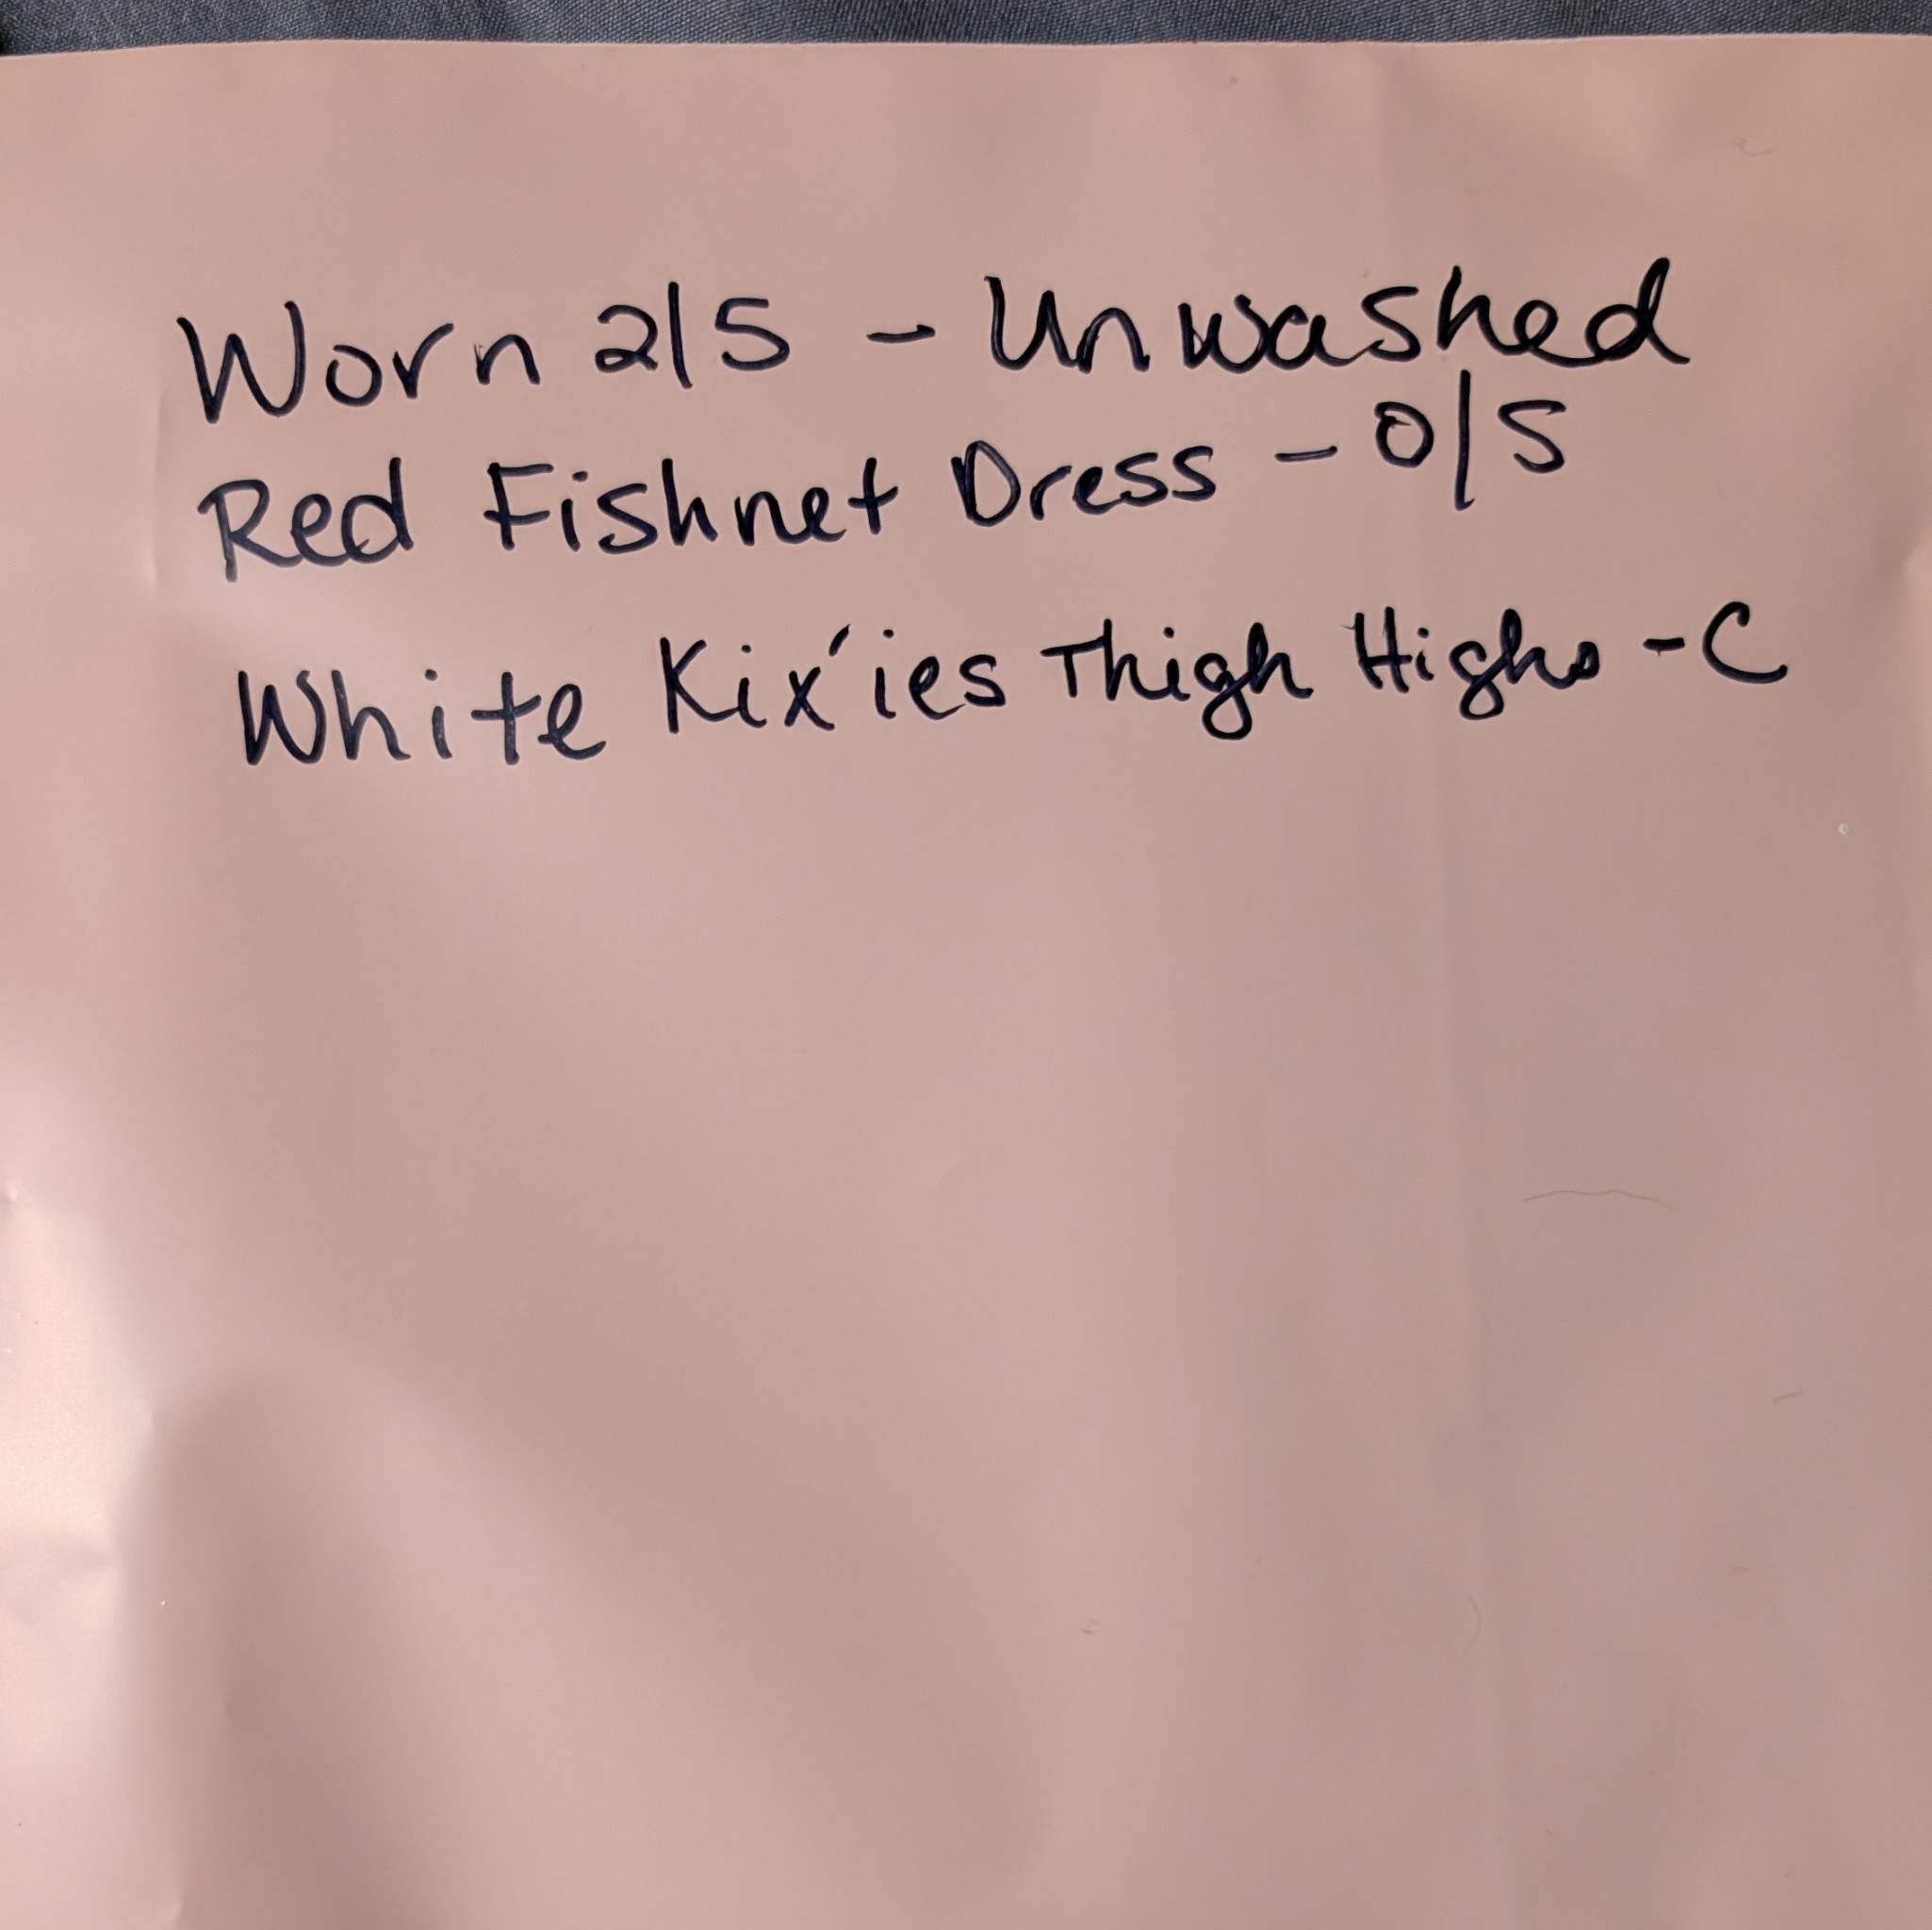 Worn 2/5 - Unwashed
Red Fishnet Dress - O/S
White Kix'ies Thigh Highs - C